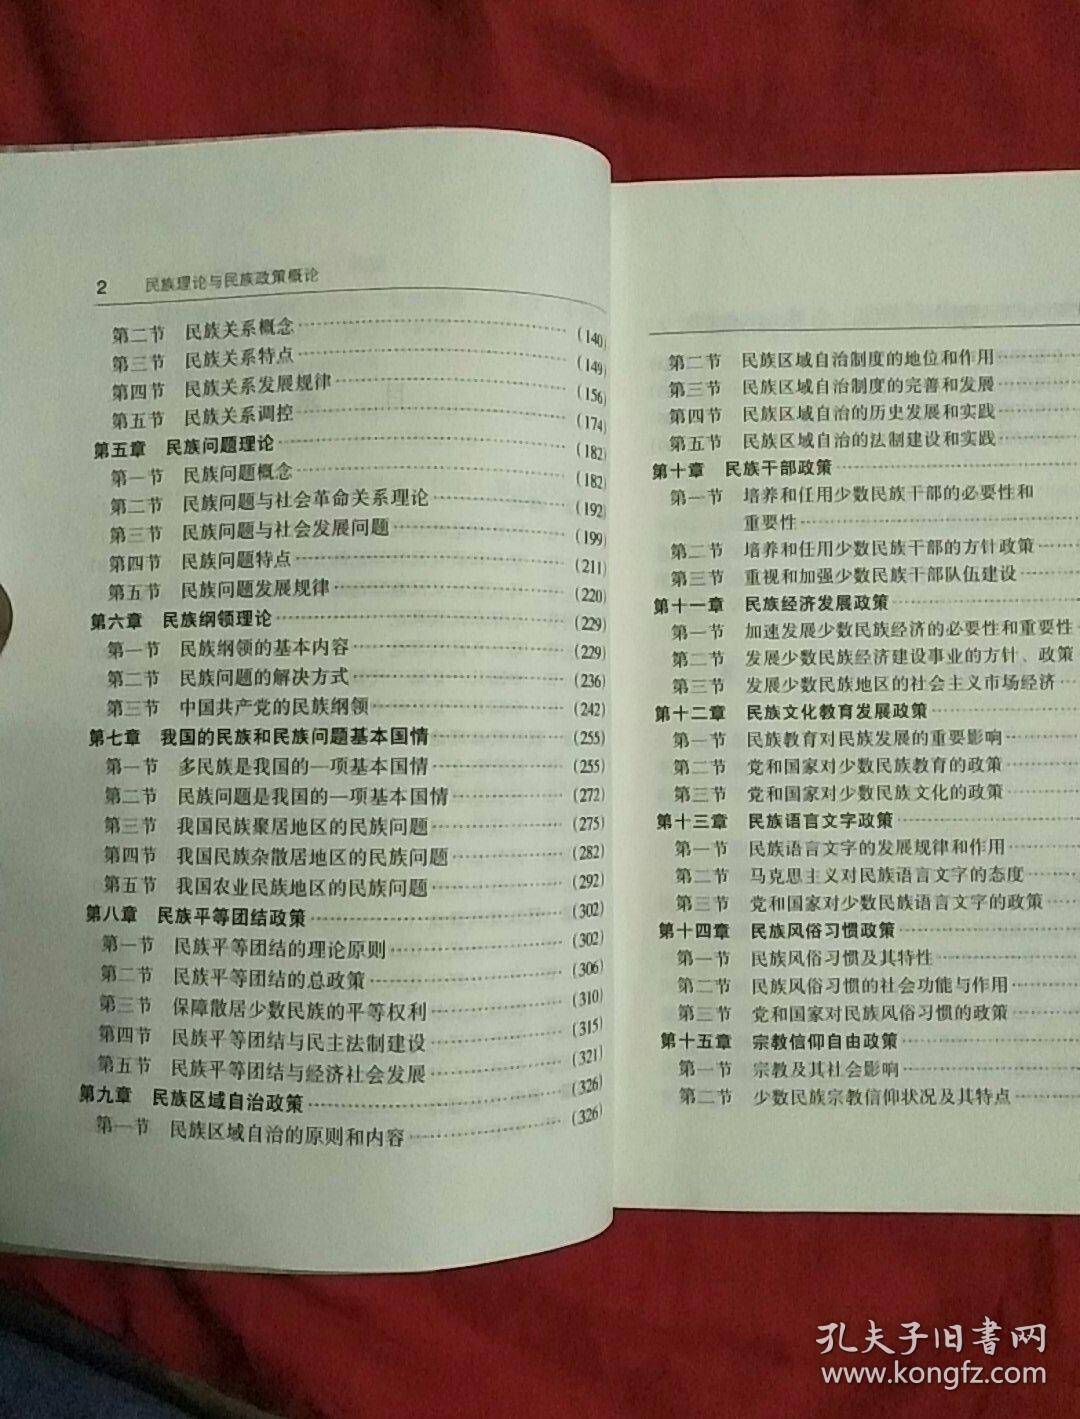 2 民族理论与民族政策概论
第二节 民族关系概念……(140)
第三节 民族关系特点……(149)
第四节 民族关系发展规律……(156)
第五节 民族关系调控……(174)
第五章 民族问题理论……(182)
第一节 民族问题概念……(182)
第二节 民族问题与社会革命关系理论……(192)
第三节 民族问题与社会发展问题……(199)
第四节 民族问题特点……(211)
第五节 民族问题发展规律……(220)
第六章 民族纲领理论……(229)
第一节 民族纲领的基本内容……(229)
第二节 民族问题的解决方式……(236)
第三节 中国共产党的民族纲领……(242)
第七章 我国的民族和民族问题基本国情……(255)
第一节 多民族是我国的一项基本国情……(255)
第二节 民族问题是我国的一项基本国情……(272)
第三节 我国民族聚居地区的民族问题……(275)
第四节 我国民族杂散居地区的民族问题……(282)
第五节 我国农业民族地区的民族问题……(292)
第八章 民族平等团结政策……(302)
第一节 民族平等团结的理论原则……(302)
第二节 民族平等团结的总政策……(306)
第三节 保障散居少数民族的平等权利……(310)
第四节 民族平等团结与民主法制建设……(315)
第五节 民族平等团结与经济社会发展……(321)
第九章 民族区域自治政策……(326)
第一节 民族区域自治的原则和内容……(326)
第二节 民族区域自治制度的地位和作用……
第三节 民族区域自治制度的完善和发展……
第四节 民族区域自治的历史发展和实践……
第五节 民族区域自治的法制建设和实践……
第十章 民族干部政策……
第一节 培养和任用少数民族干部的必要性和
重要性……
第二节 培养和任用少数民族干部的方针政策……
第三节 重视和加强少数民族干部队伍建设……
第十一章 民族经济发展政策……
第一节 加速发展少数民族经济的必要性和重要性…
第二节 发展少数民族经济建设事业的方针、政策…
第三节 发展少数民族地区的社会主义市场经济……
第十二章 民族文化教育发展政策……
第一节 民族教育对民族发展的重要影响……
第二节 党和国家对少数民族教育的政策……
第三节 党和国家对少数民族文化的政策……
第十三章 民族语言文字政策……
第一节 民族语言文字的发展规律和作用……
第二节 马克思主义对民族语言文字的态度……
第三节 党和国家对少数民族语言文字的政策……
第十四章 民族风俗习惯政策……
第一节 民族风俗习惯及其特性……
第二节 民族风俗习惯的社会功能与作用……
第三节 党和国家对民族风俗习惯的政策……
第十五章 宗教信仰自由政策……
第一节 宗教及其社会影响……
第二节 少数民族宗教信仰状况及其特点……
孔夫子旧书网
www.kongfz.com